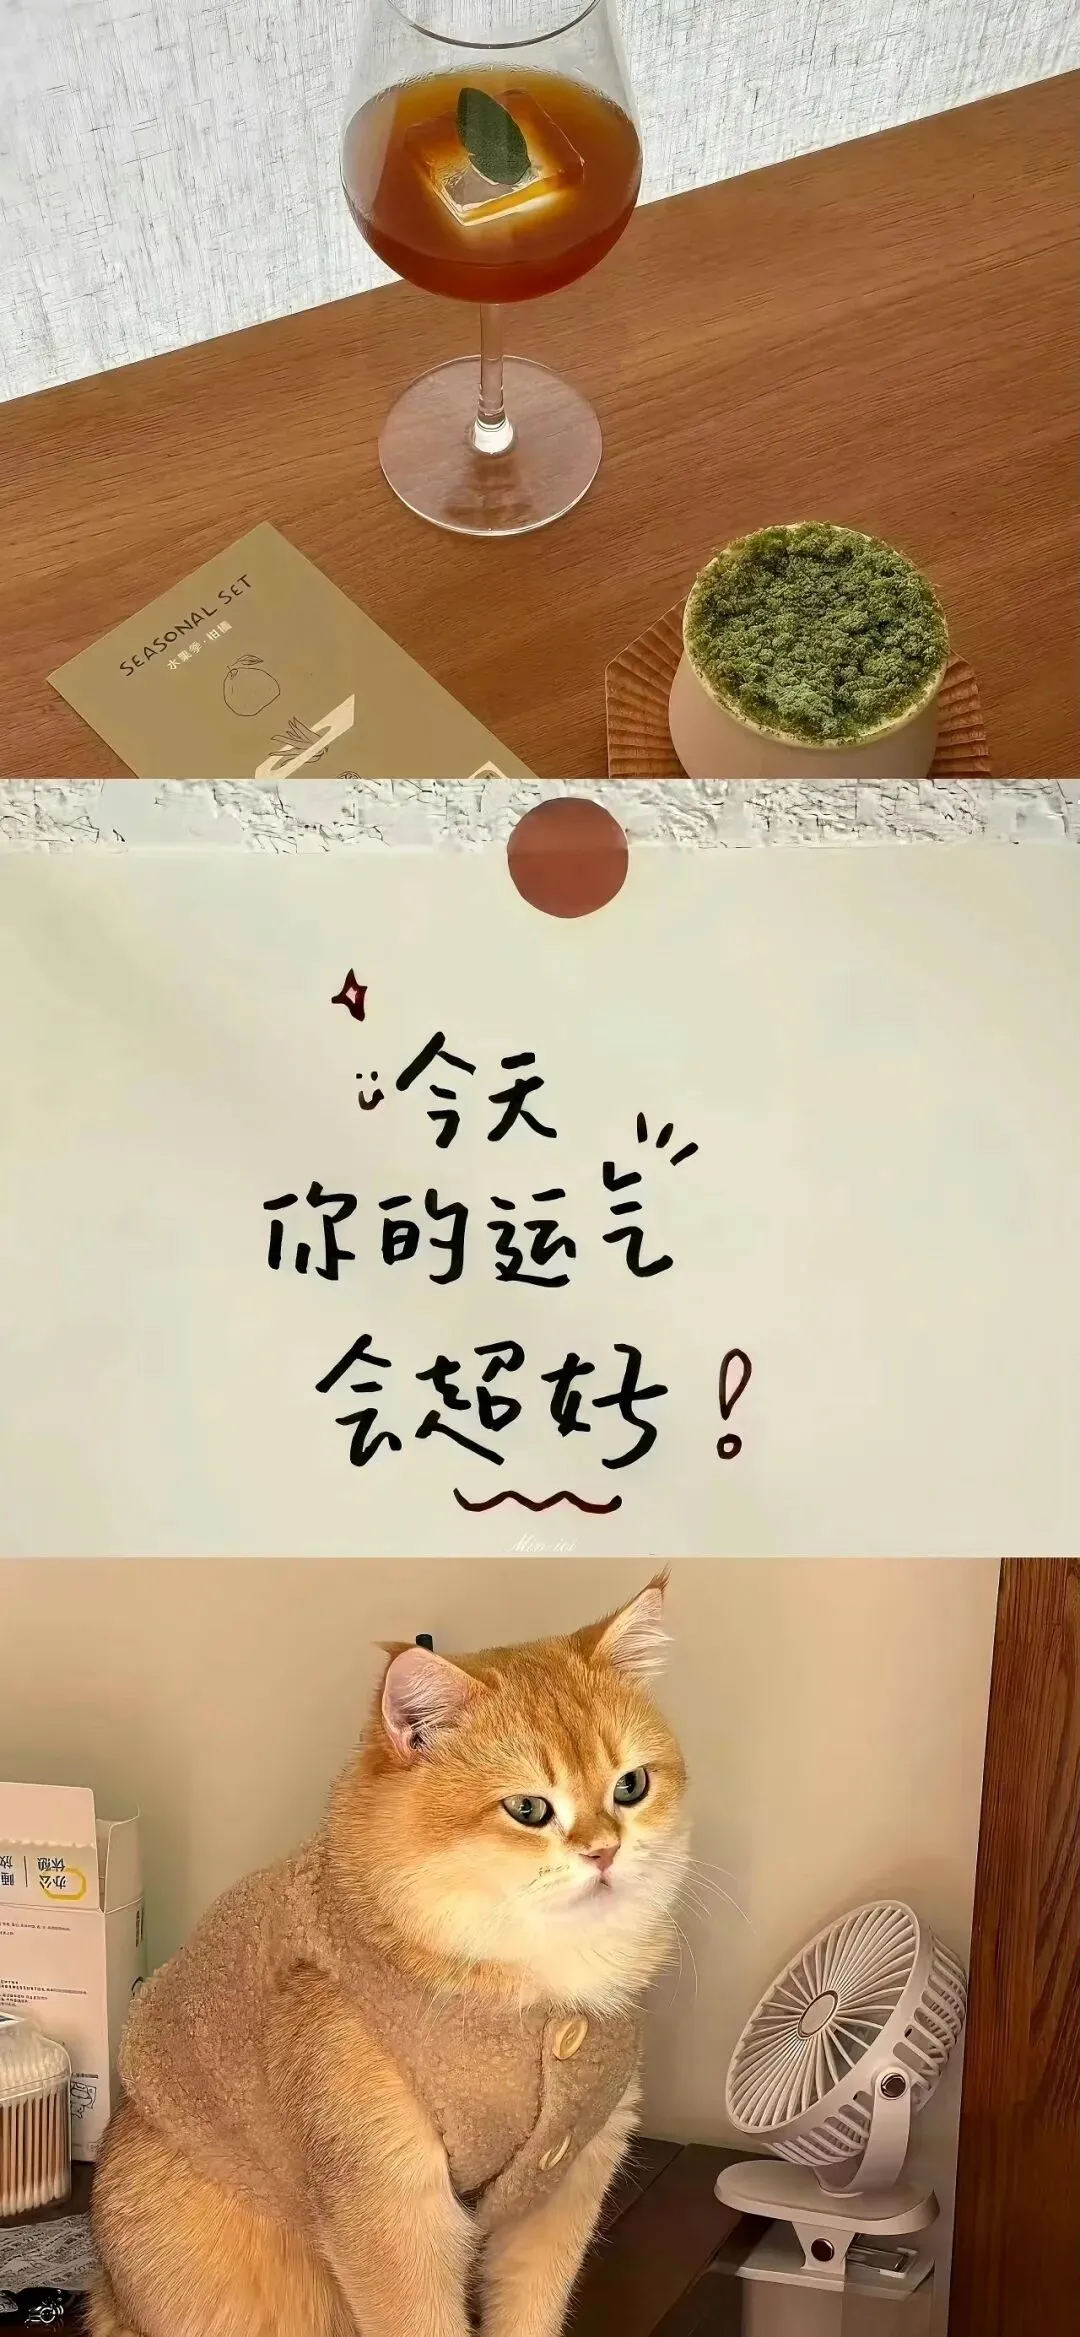 SEASONAL SET
水果季·柑橘
今天
你的运气
会超好！
Min-ioi
办公
休憩